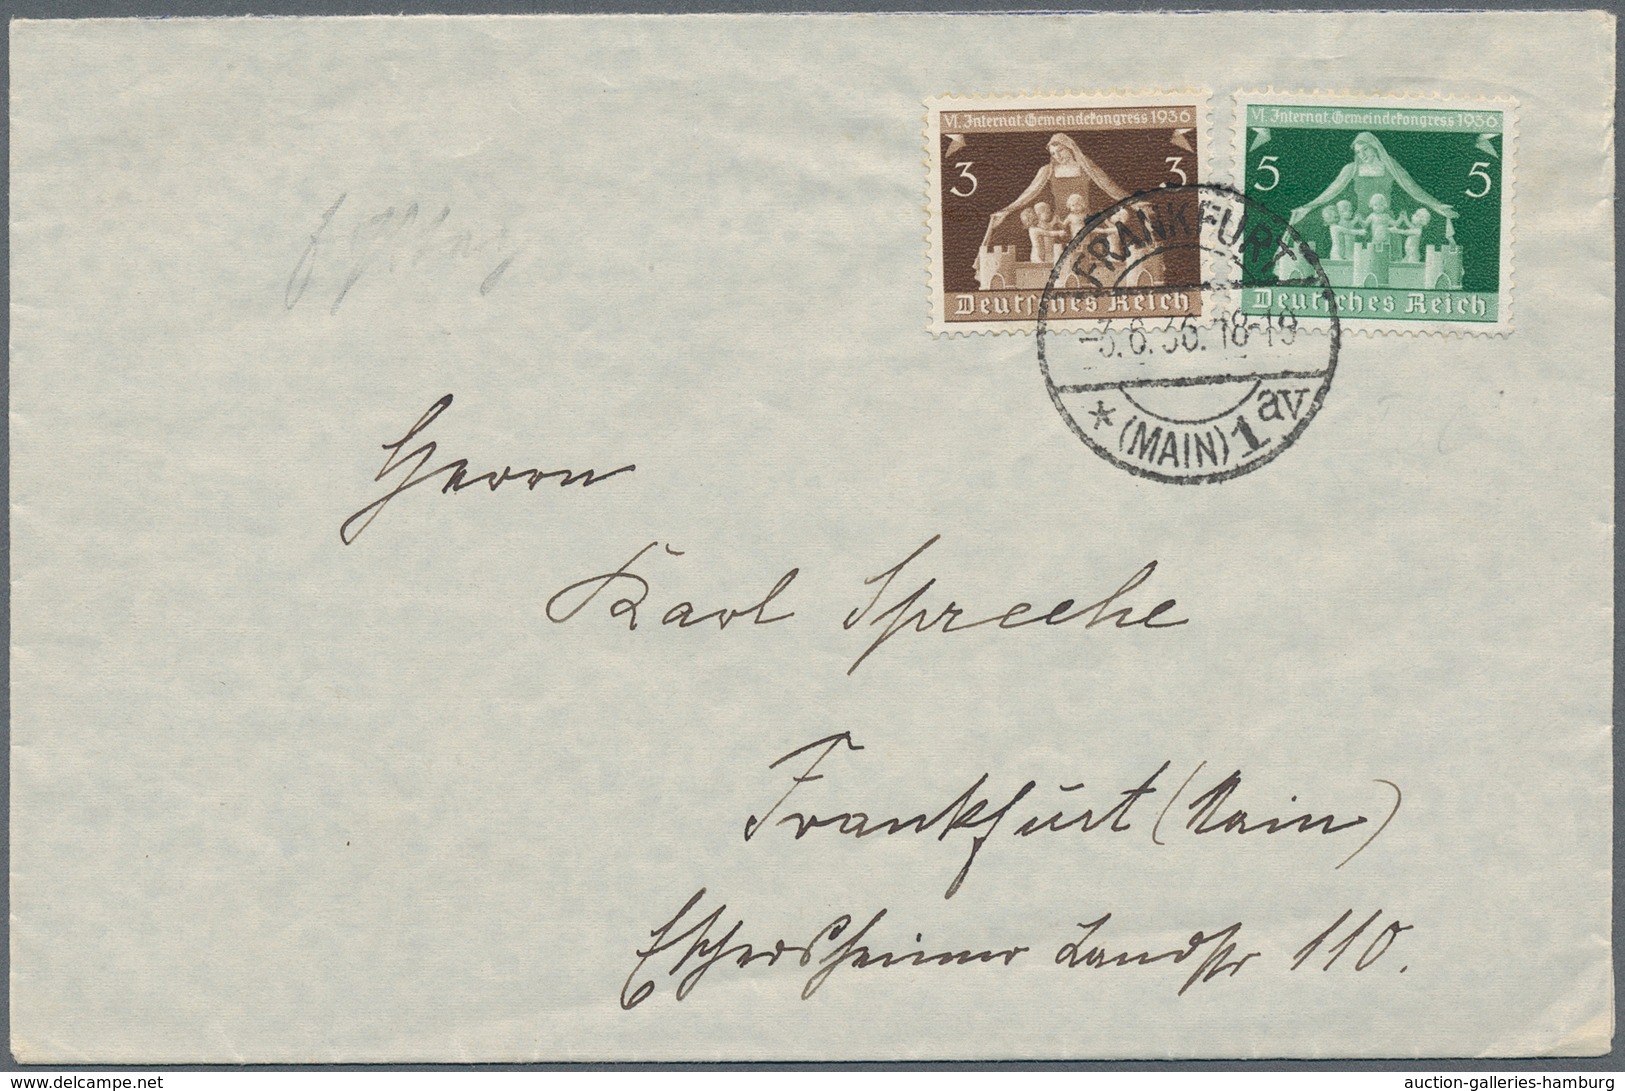 VI. Internat. Gemeindekongress 1936
3 3
Deutsches Reich
VI. Internat. Gemeindekongress 1936
5 5
Deutsches Reich
FRANKFURT
-3.6.36. 18-19
* (MAIN) 1 av
Herrn
Karl Spreehe
Frankfurt (Main)
Eschersheimer Landstr 110.
www.delcampe.net
auction-galleries-hamburg